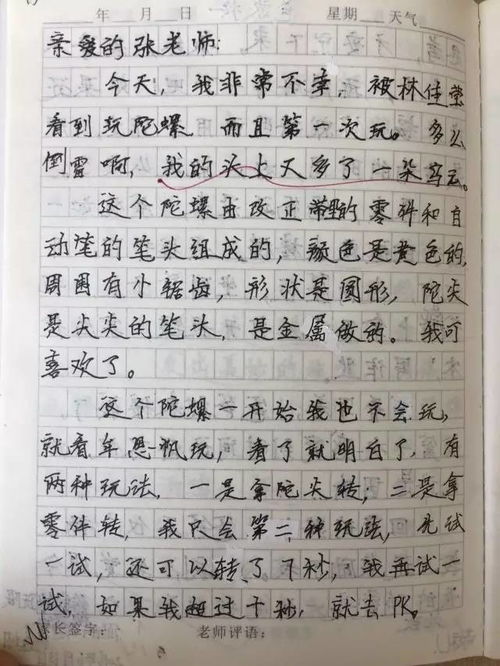 年 月 日 星期 天气
亲爱的张老师:
今天,我非常不幸,被林佳莹
看到玩陀螺 而且第一次玩。 多么
倒霉啊,我的头上又多了一朵乌云。
这个陀螺由改正带里的零件和自
动笔的笔头组成的,颜色是黄色的,
周围有小锯齿,形状是圆形,陀尖
是尖尖的笔头,是金属做的。我可
喜欢了。
这个陀螺一开始我也不会玩,
就看年恩帆玩,看了就明白了,有
两种玩法,一是拿陀尖转,二是拿
零件转,我只会第二种玩法,先试
一试,还可以转了7秒,我再试一
试,如果我超过十秒,就去PK。
家长签字: 老师评语:
6